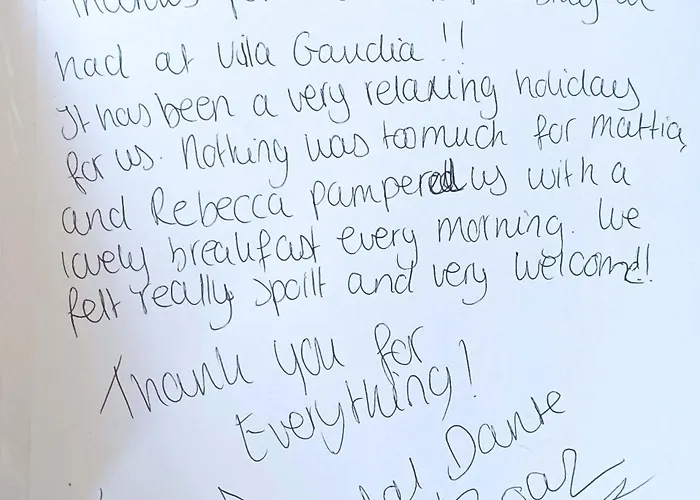 had at Villa Gaudia !!
It has been a very relaxing holiday
for us. Nothing was too much for mattia,
and Rebecca pampered us with a
lovely breakfast every morning. We
felt really spoilt and very welcome!!
Thank you for
Everything!
Dante